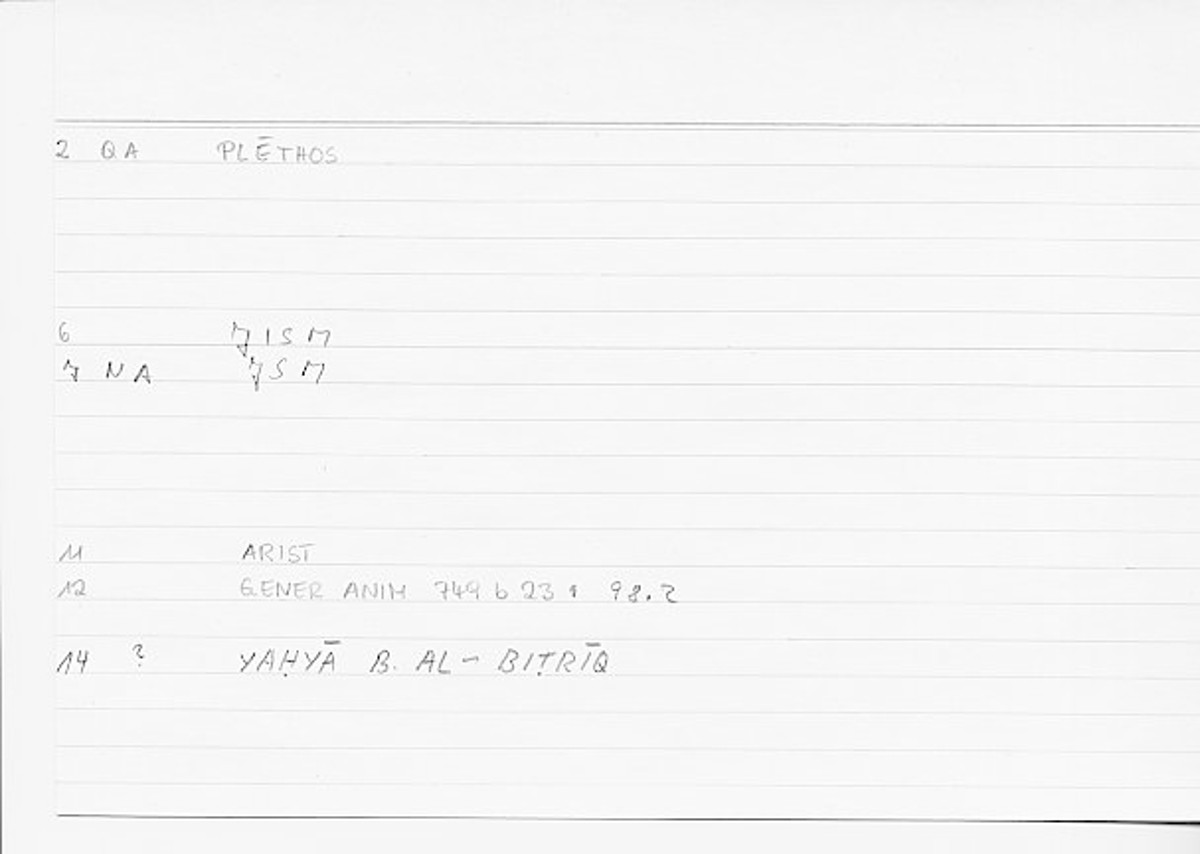 2 QA PLĒTHOS
6 JISM
7 NA JSM
11 ARIST
12 GENER ANIM 749 b 23 1 98.2
14 ? YAḤYĀ B. AL-BIṬRĪQ